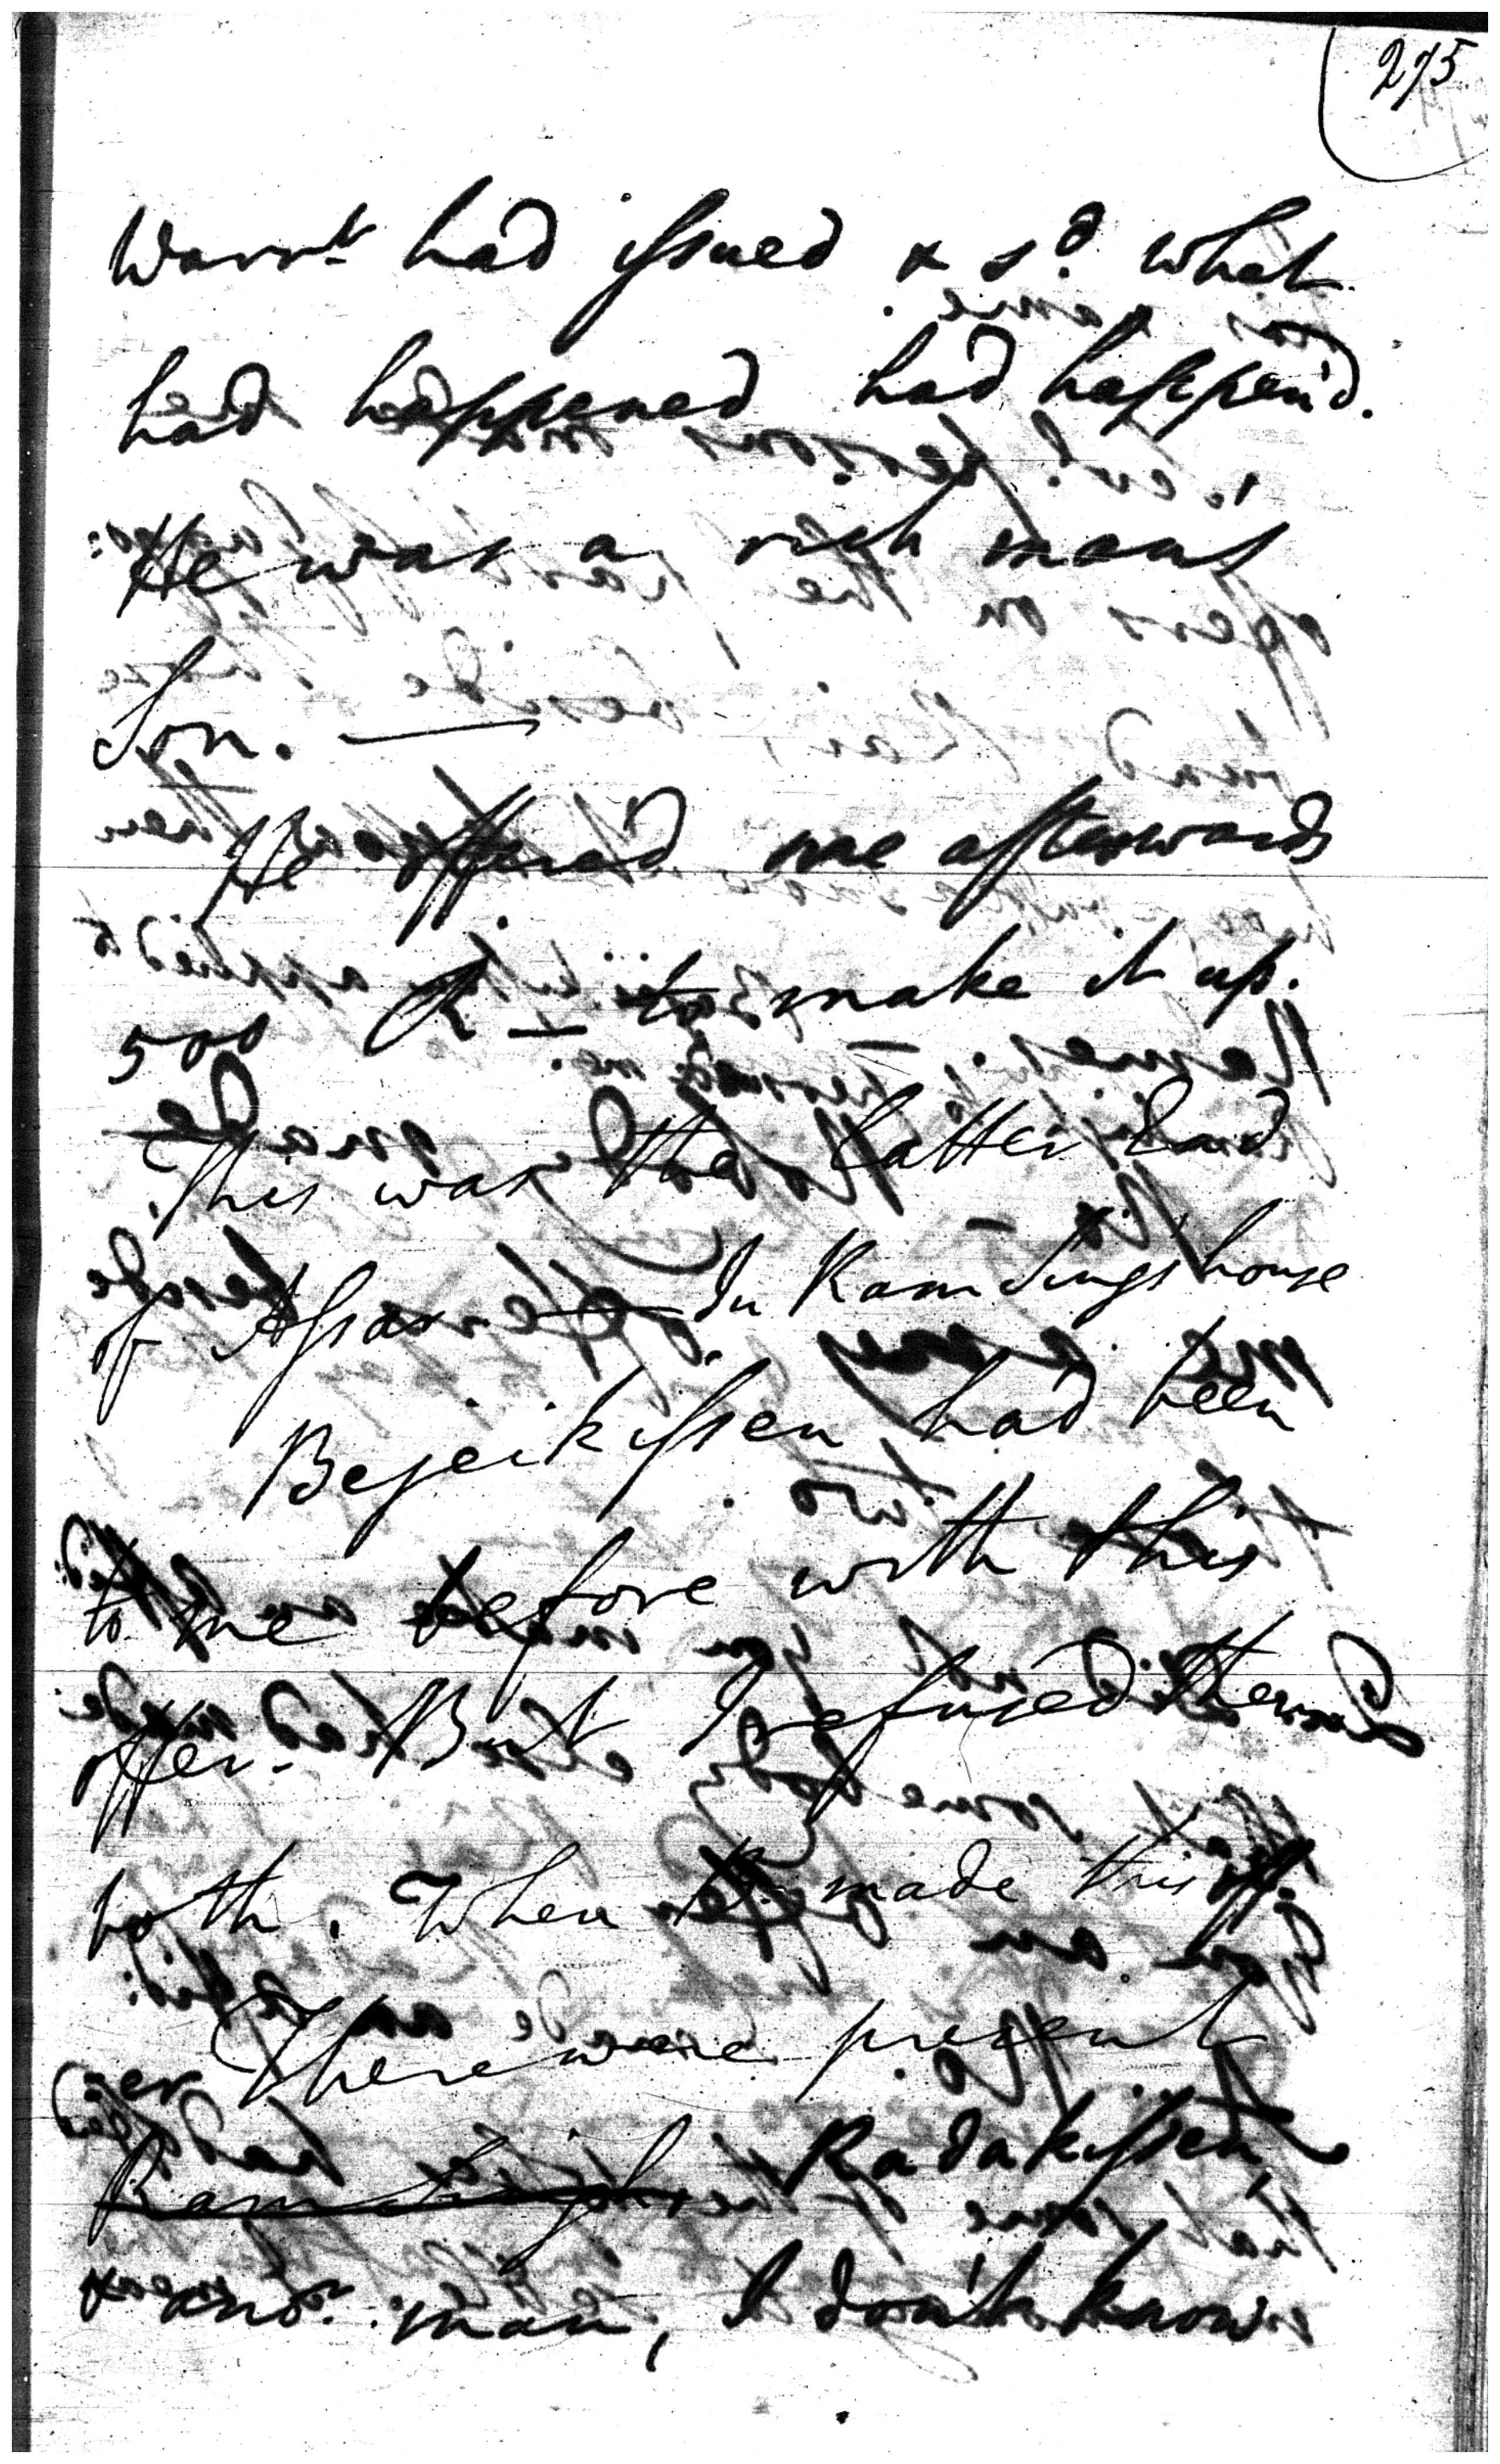 275
Warrt had issued & sd. what
had happened had happen'd.
He was a rich mans
Son. —
He offered me afterwards
500 R — to make it up.
This was the latter End
of Assar — In Ram Sings house
Bejeikissen had been
to me before with this
offer. But I refused them
both. When made this off
er There were present
Ram Singh Radakissen
& anor. man, I don't know